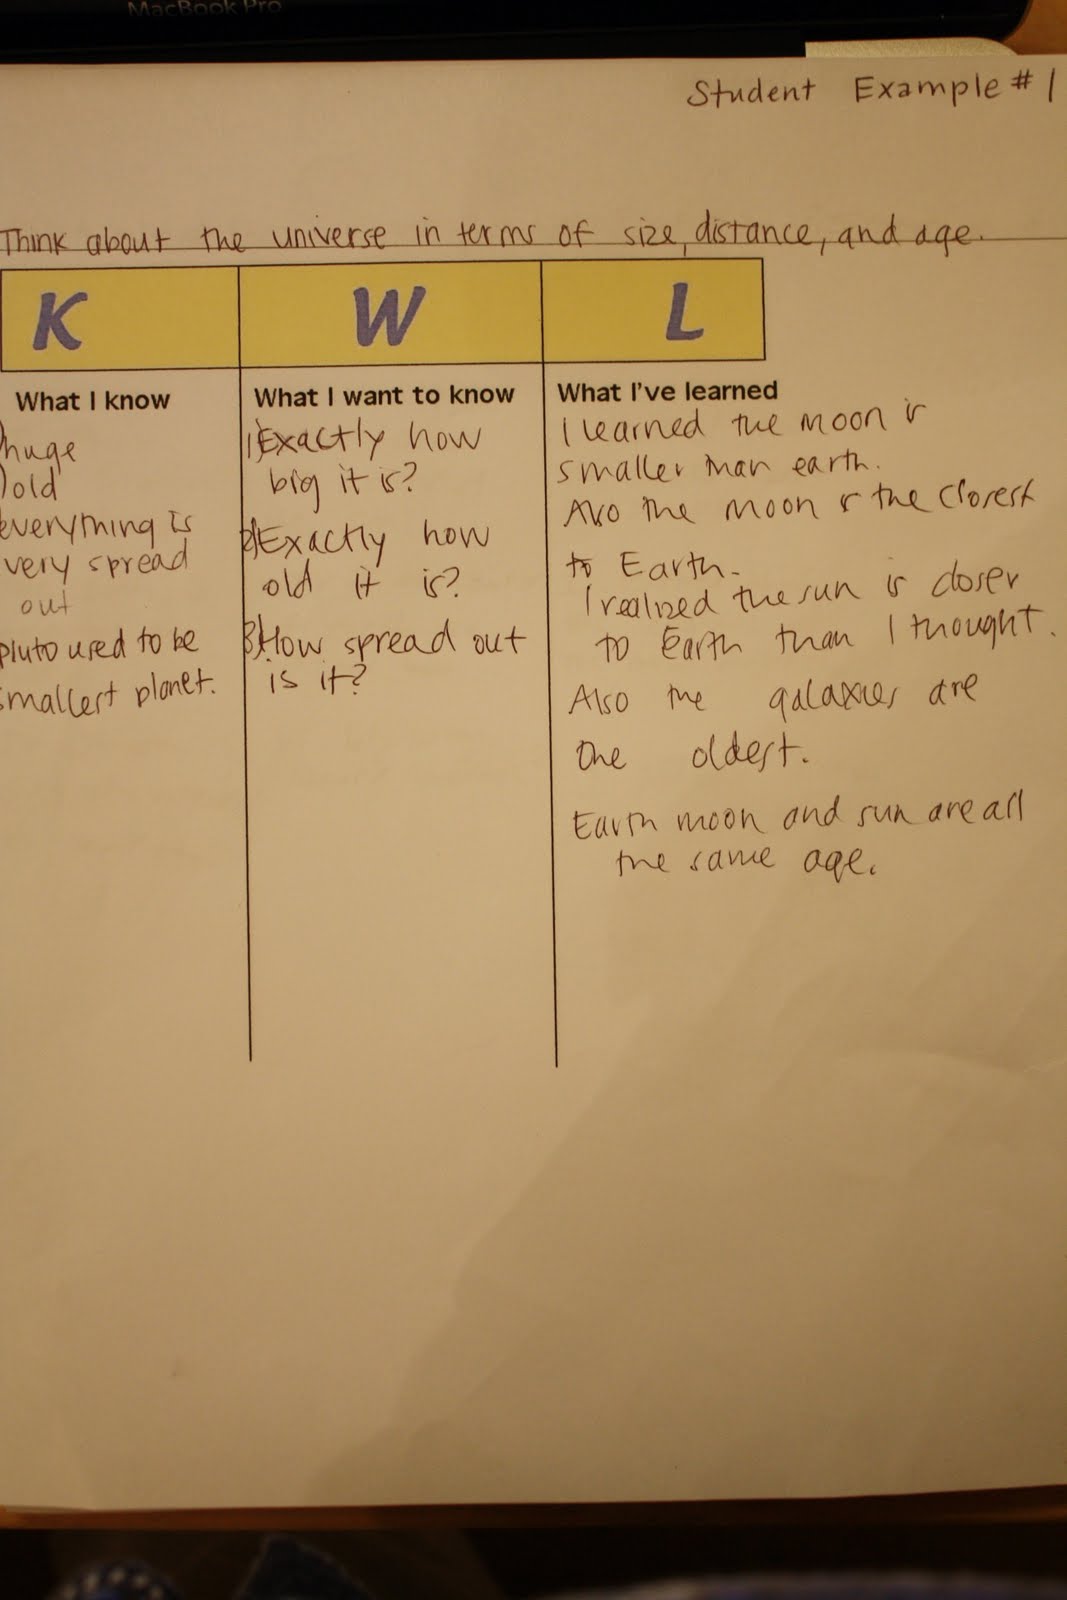 MacBook Pro
Student Example # 1
Think about the universe in terms of size, distance, and age.
K W L
What I know
)huge
)old
everything is
very spread
out
pluto used to be
smallest planet.
What I want to know
1)Exactly how
big it is?
2)Exactly how
old it is?
3)How spread out
is it?
What I've learned
I learned the moon is
smaller than earth.
Also the moon is the closest
to Earth.
I realized the sun is closer
to Earth than I thought.
Also the galaxies are
the oldest.
Earth moon and sun are all
the same age.